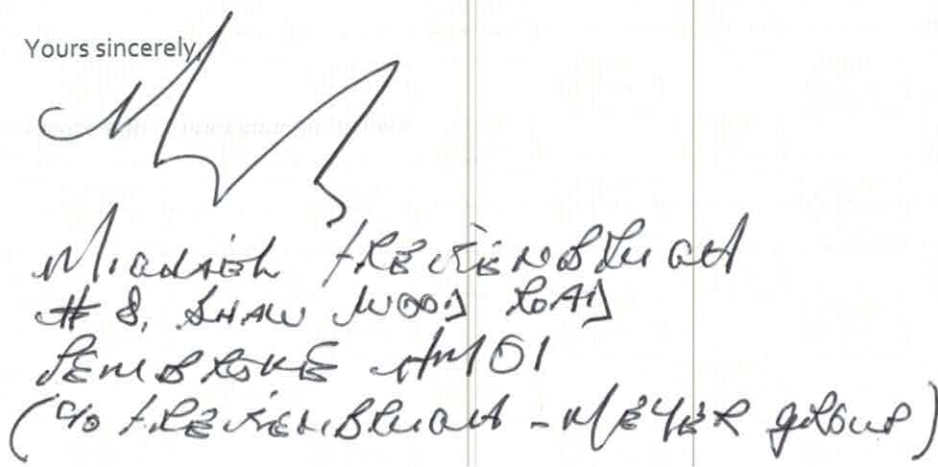 Yours sincerely,
Michael Freisenbruch
# 8, Shaw Wood Road
Pembroke HM 01
(c/o Freisenbruch - Meyer Group)